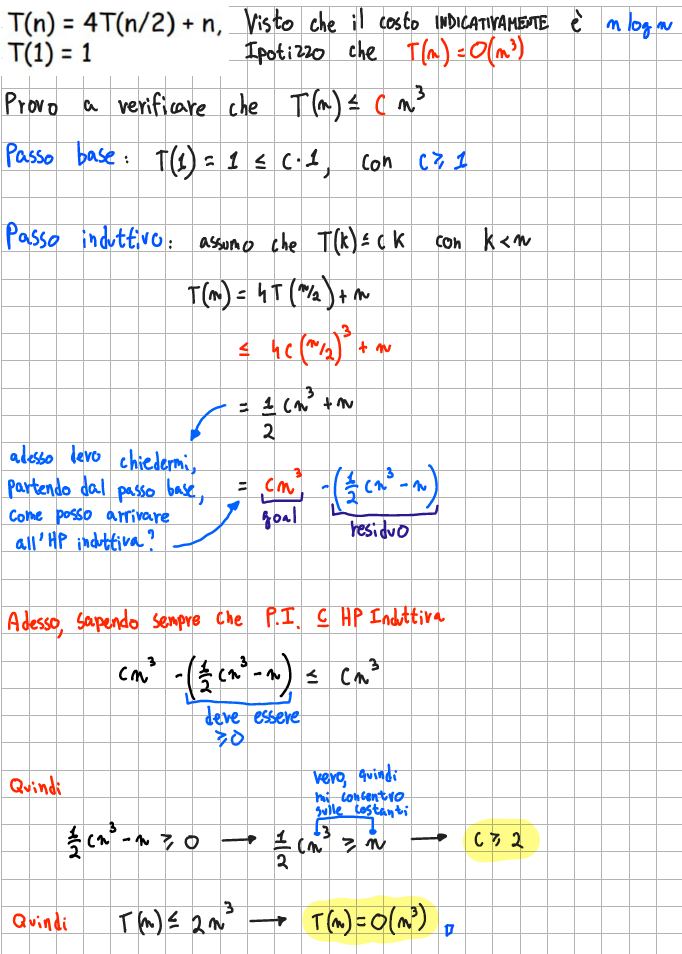 T(n) = 4T(n/2) + n,
T(1) = 1
Visto che il costo INDICATIVAMENTE è n log n
Ipotizzo che T(n) = O(n³)
Provo a verificare che T(n) ≤ C n³
Passo base: T(1) = 1 ≤ C·1, con C ≥ 1
Passo induttivo: assumo che T(k) ≤ C k con k < n
T(n) = 4T(n/2) + n
≤ 4C(n/2)³ + n
= 1/2 Cn³ + n
adesso devo chiedermi,
partendo dal passo base,
come posso arrivare
all'HP induttiva?
= Cn³ - (1/2 Cn³ - n)
goal residuo
Adesso, sapendo sempre che P.I. ⊆ HP Induttiva
Cn³ - (1/2 Cn³ - n) ≤ Cn³
deve essere
≥ 0
Quindi
vero, quindi
mi concentro
sulle costanti
1/2 Cn³ - n ≥ 0 → 1/2 Cn³ ≥ n → C ≥ 2
Quindi T(n) ≤ 2n³ → T(n) = O(n³) □